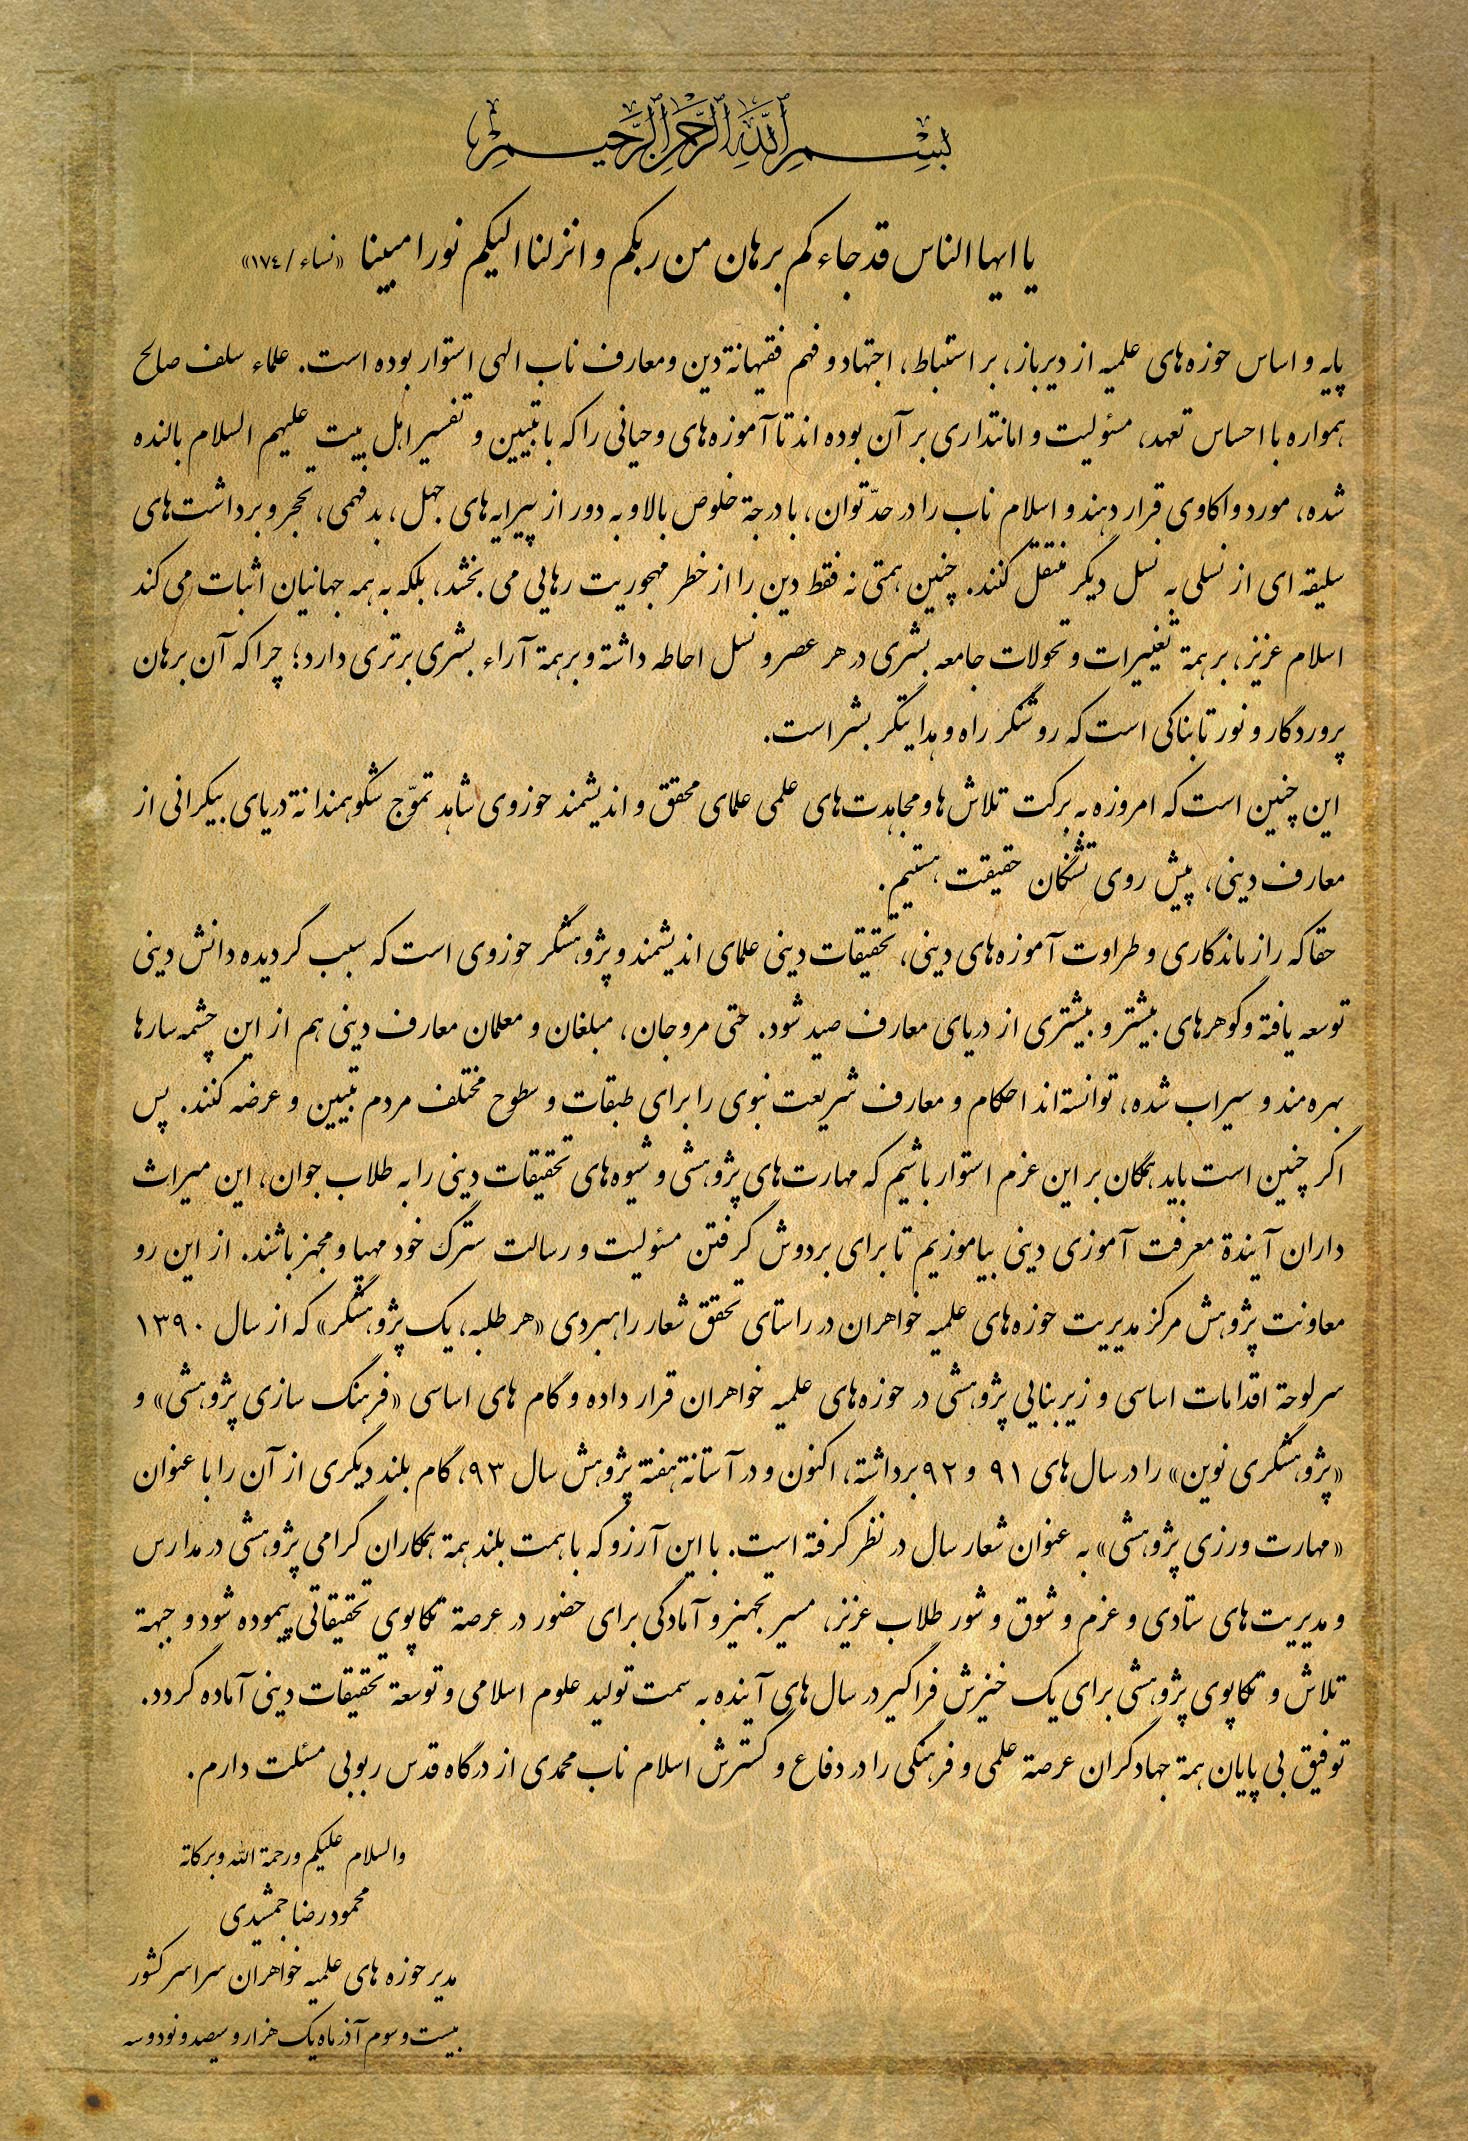 بِسْمِ اللَّهِ الرَّحْمَنِ الرَّحِيمِ
یا ایها الناس قد جاءکم برهان من ربکم و انزلنا الیکم نورا مبینا «نساء/۱۷۴»
پایه و اساس حوزه‌های علمیه از دیرباز، بر استنباط، اجتهاد و فهم فقیهانة دین ومعارف ناب الهی استوار بوده است. علماء سلف صالح
همواره با احساس تعهد، مسئولیت و امانتداری بر آن بوده اند تا آموزه‌های وحیانی را که با تبیین و تفسیر اهل بیت علیهم السلام بالنده
شده، مورد واکاوی قرار دهند و اسلام ناب را در حدّ توان، با درجة خلوص بالا و به دور از پیرایه‌های جهل، بدفهمی، تحجر و برداشت‌های
سلیقه ای از نسلی به نسل دیگر منتقل کنند. چنین همتی نه فقط دین را از خطر مهجوریت رهایی می بخشد، بلکه به همه جهانیان اثبات می کند
اسلام عزیز، بر همة تغییرات و تحولات جامعه بشری در هر عصر و نسل احاطه داشته و بر همة آراء بشری برتری دارد؛ چرا که آن برهان
پروردگار و نور تابناکی است که روشنگر راه و هدایتگر بشر است.
این چنین است که امروزه به برکت تلاش‌ها و مجاهدت‌های علمی علمای محقق و اندیشمند حوزوی شاهد تموّج شکوهمندانة دریای بیکرانی از
معارف دینی، پیش روی تشنگان حقیقت هستیم.
حقا که راز ماندگاری و طراوت آموزه‌های دینی، تحقیقات دینی علمای اندیشمند و پژوهشگر حوزوی است که سبب گردیده دانش دینی
توسعه یافته و گوهرهای بیشتر و بیشتری از دریای معارف صید شود. حتی مروجان، مبلغان و معلمان معارف دینی هم از این چشمه‌سارها
بهره‌مند و سیراب شده، توانسته‌اند احکام و معارف شریعت نبوی را برای طبقات و سطوح مختلف مردم تبیین و عرضه کنند. پس
اگر چنین است باید همگان بر این عزم استوار باشیم که مهارت‌های پژوهشی و شیوه‌های تحقیقات دینی را به طلاب جوان، این میراث
داران آیندة معرفت آموزی دینی بیاموزیم تا برای بردوش گرفتن مسئولیت و رسالت سترگ خود مهیا و مجهز باشند. از این رو
معاونت پژوهش مرکز مدیریت حوزه‌های علمیه خواهران در راستای تحقق شعار راهبردی «هر طلبه، یک پژوهشگر» که از سال ۱۳۹۰
سرلوحة اقدامات اساسی و زیربنایی پژوهشی در حوزه‌های علمیه خواهران قرار داده و گام های اساسی «فرهنگ سازی پژوهشی» و
«پژوهشگری نوین» را در سال‌های ۹۱ و ۹۲ برداشته، اکنون و در آستانة هفتة پژوهش سال ۹۳، گام بلند دیگری از آن را با عنوان
«مهارت ورزی پژوهشی» به عنوان شعار سال در نظر گرفته است. با این آرزو که با همت بلند همة همکاران گرامی پژوهشی در مدارس
و مدیریت‌های ستادی و عزم و شوق و شور طلاب عزیز، مسیر تجهیز و آمادگی برای حضور در عرصة تکاپوی تحقیقاتی پیموده شود و جبهة
تلاش و تکاپوی پژوهشی برای یک خیزش فراگیر در سال های آینده به سمت تولید علوم اسلامی و توسعة تحقیقات دینی آماده گردد.
توفیق بی پایان همة جهادگران عرصة علمی و فرهنگی را در دفاع و گسترش اسلام ناب محمدی از درگاه قدس ربوبی مسئلت دارم.
والسلام علیکم ورحمة الله وبرکاته
محمود رضا جمشیدی
مدیر حوزه های علمیه خواهران سراسر کشور
بیست و سوم آذر ماه یک هزار و سیصد و نود و سه